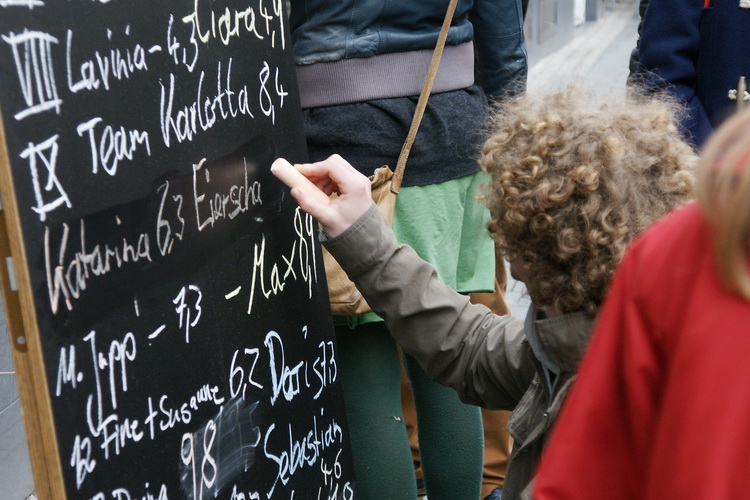 Ciara 4,9
VIII Lavinia - 4,3
IX Team Karlotta 8,4
Katarina 6,3 Eiarscha
11. Jappi - 7,3 - Max 8,1
12 Fine + Susanne 6,2 Doris 7,3
9,8 Sebastian
4,6